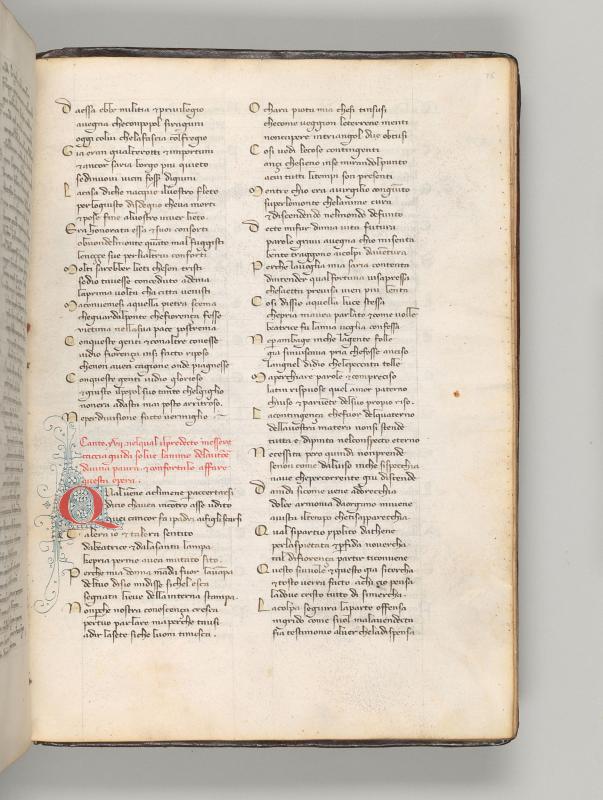 Da essa ebbe militia & privilegio
avegna che con popol si raguni
oggi colui che la fascia col fregio
Gia eran qualterotti & importuni
& ancor saria borgo piu quieto
se di nuovi vicin fosser digiuni
La casa di che nacque il vostro fleto
per lo giusto disdegno che va morti
& pose fine al vostro viver lieto
Era honorata essa & suoi consorti
o buondelmonte quanto mal fuggisti
le noççe sue per li altrui conforti
Molti sarebber lieti che son tristi
se dio tavesse conceduto adema
la prima volta cha citta venisti
Ma conveniesi a quella pietra scema
che guardal ponte che fiorença fesse
victima nella sua pace postrema
Con queste genti & con altre con esse
vidio fiorença in si facto riposo
che non avea cagione onde piagnesse
Con queste genti vidio glorioso
& giusto il popol suo tanto chel giglio
non era ad asta mai posto aritroso
Ne per division facto vermiglio
Canto xvii. nel qual il predecto messere
caccia guida solve lanimo dellautore
duna paura & confortalo affare
questa opera.
Qual venne aclimene per accertarsi
di cio chavea incontro asse udito
quei cancor fa ipadri aifigli scarsi
Tal era io & tal era sentito
da beatrice & dalla santa lampa
che pria per me avea mutato sito.
Perche mia donna manda fuor la vampa
del tuo disio mi disse si chel esca
segnata bene della interna stampa.
Non perche nostra conoscença cresca
per tuo parlare ma perche tausi
a dir la sete si che luom ti mesca.
O chara piota mia che si tinsusi
che come veggion le terrene menti
non capere in triangol due obtusi
Cosi vedi le cose contingenti
ançi che sieno in se mirando il punto
a cui tutti li tempi son presenti
Mentre chio era a virgilio congiunto
su per lo monte che lanime cura
& discendendo nel mondo defunto
Decte mi fur di mia vita futura
parole gravi avegna chio mi senta
ben tetragono ai colpi di ventura
Perche la voglia mia saria contenta
dintender qual fortuna mi sapressa
che saetta previsa vien piu lenta
Cosi dissio a quella luce stessa
che pria mavea parlato & come volle
beatrice fu la mia voglia confessa
Ne per ambage in che la gente folle
gia sinviscava pria che fosse anciso
lagnel di dio che le peccata tolle
Ma per chiare parole & con preciso
latin rispuose quel amor paterno
chiuso & parvente del suo proprio riso.
La contingença che fuor del quaderno
della vostra matera non si stende
tutta e dipinta nel conspecto eterno
Necessita pero quindi non prende
se non come dal viso in che si specchia
nave che per corrente giu discende
Da indi si come vene ad orecchia
dolce armonia da organo mi viene
a vista il tempo che ti saparecchia.
Qual si partio ypolito dathene
per la spietata & perfida noverca
tal di fiorença partir ti convene
Questo si vuole & questo gia si cerca
& tosto verra facto a chi cio pensa
la dove cristo tutto di si merca.
La colpa seguira la parte offensa
in grido come suol ma la vendetta
fia testimonio al ver che la dispensa